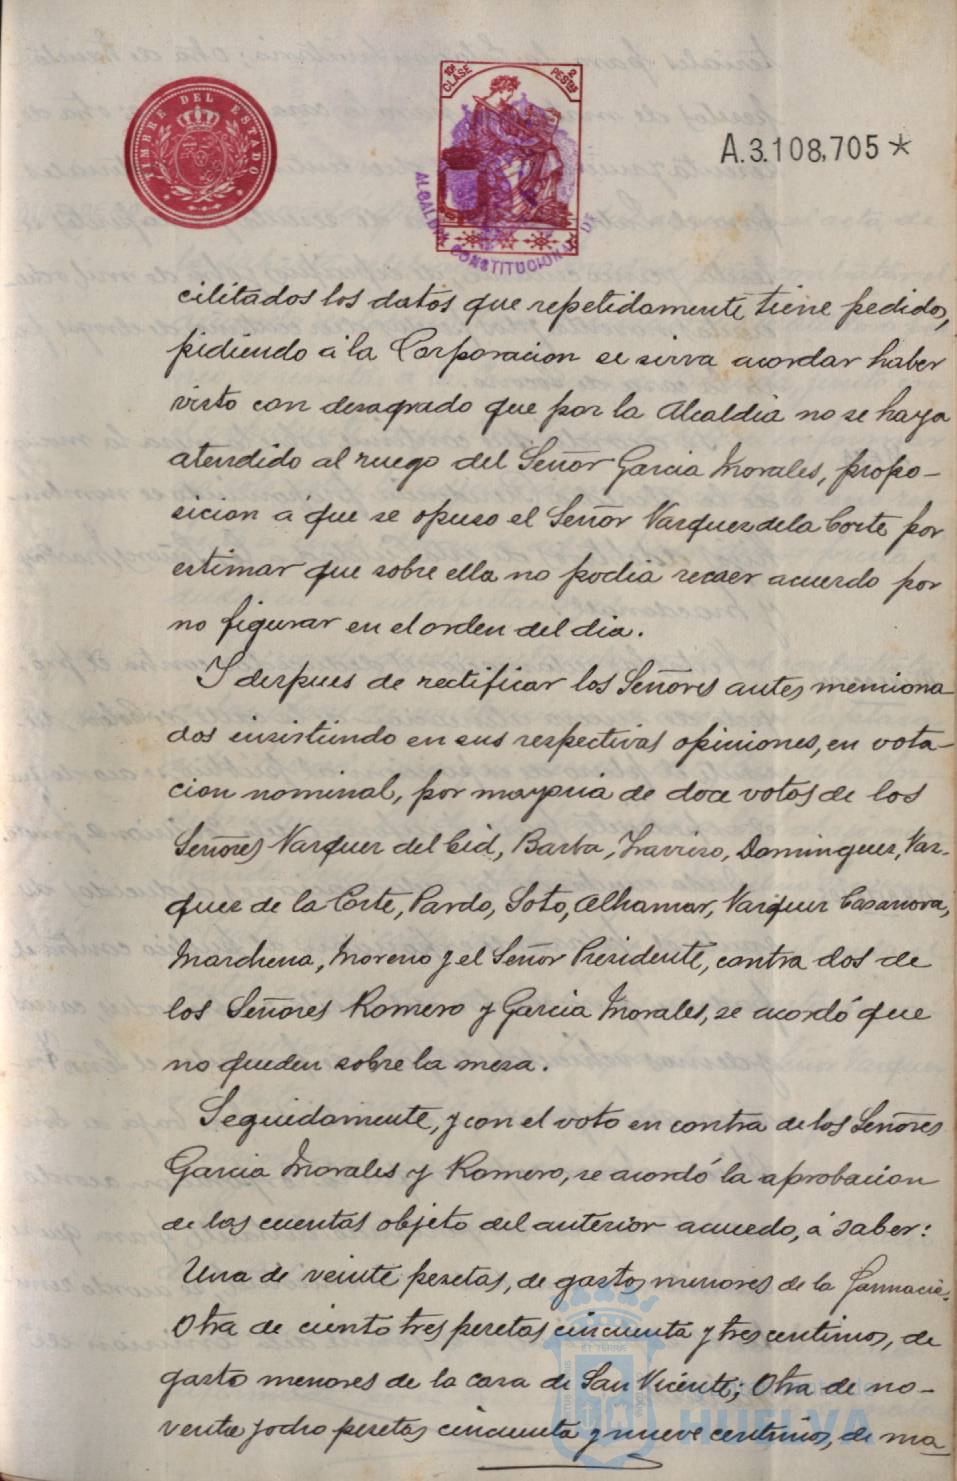 TIMBRE DEL ESTADO
10ª CLASE 2 PESTAS
ALCALDIA CONSTITUCIONAL DE
A.3.108,705*
cilitados los datos que repetidamente tiene pedidos,
pidiendo á la Corporacion se sirva acordar haber
visto con desagrado que por la Alcaldia no se haya
atendido al ruego del Señor Garcia Morales, propo-
sicion á que se opuso el Señor Vazquez de la Corte por
estimar que sobre ella no podia recaer acuerdo por
no figurar en el orden del dia.
Y despues de rectificar los Señores antes menciona-
dos insistiendo en sus respectivas opiniones, en vota-
cion nominal, por mayoria de doce votos de los
Señores Vazquez del Cid, Barba, Garrizo, Dominguez, Vaz-
quez de la Corte, Pardo, Soto, Alhamar, Vazquez Casanova,
Marchena, Moreno y el Señor Presidente, contra dos de
los Señores Romero y Garcia Morales, se acordó que
no queden sobre la mesa.
Seguidamente, y con el voto en contra de los Señores
Garcia Morales y Romero, se acordó la aprobacion
de las cuentas objeto del anterior acuerdo, á saber:
Una de veinte pesetas, de gastos menores de la Farmacia.
Otra de ciento tres pesetas cincuenta y tres centimos, de
gasto menores de la casa de San Vicente; Otra de no-
venta y ocho pesetas cincuenta y nueve centimos, de ma-
HUELVA